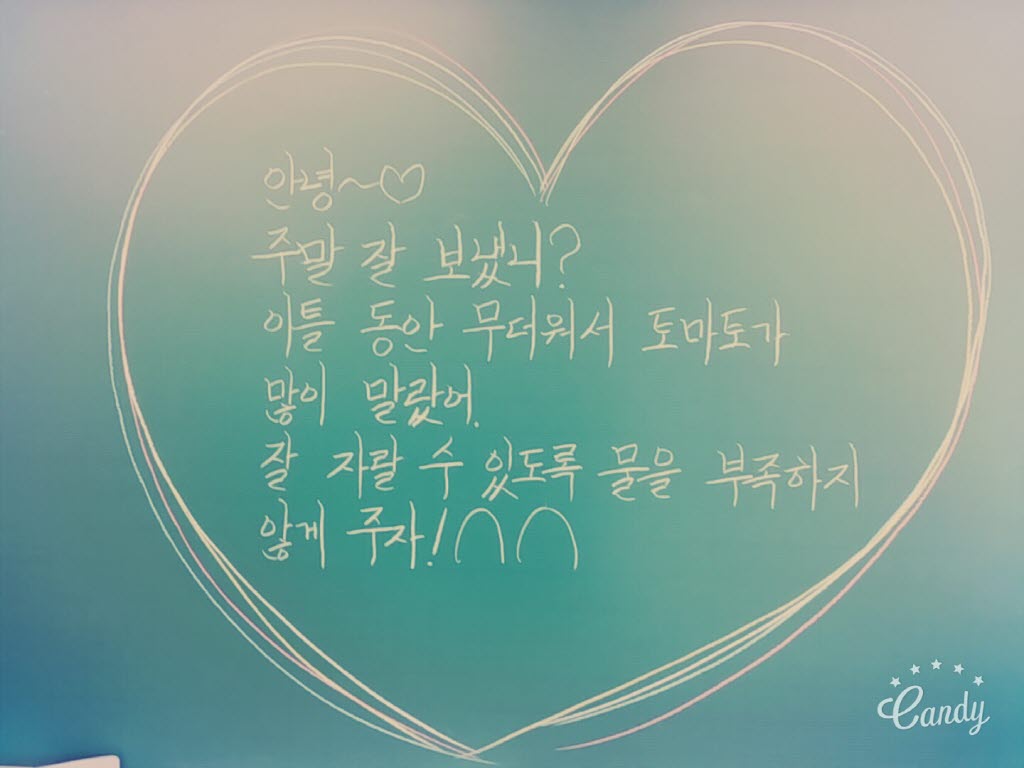 안녕~♡
주말 잘 보냈니?
이틀 동안 무더워서 토마토가
많이 말랐어.
잘 자랄 수 있도록 물을 부족하지
않게 주자!∩∩
Candy